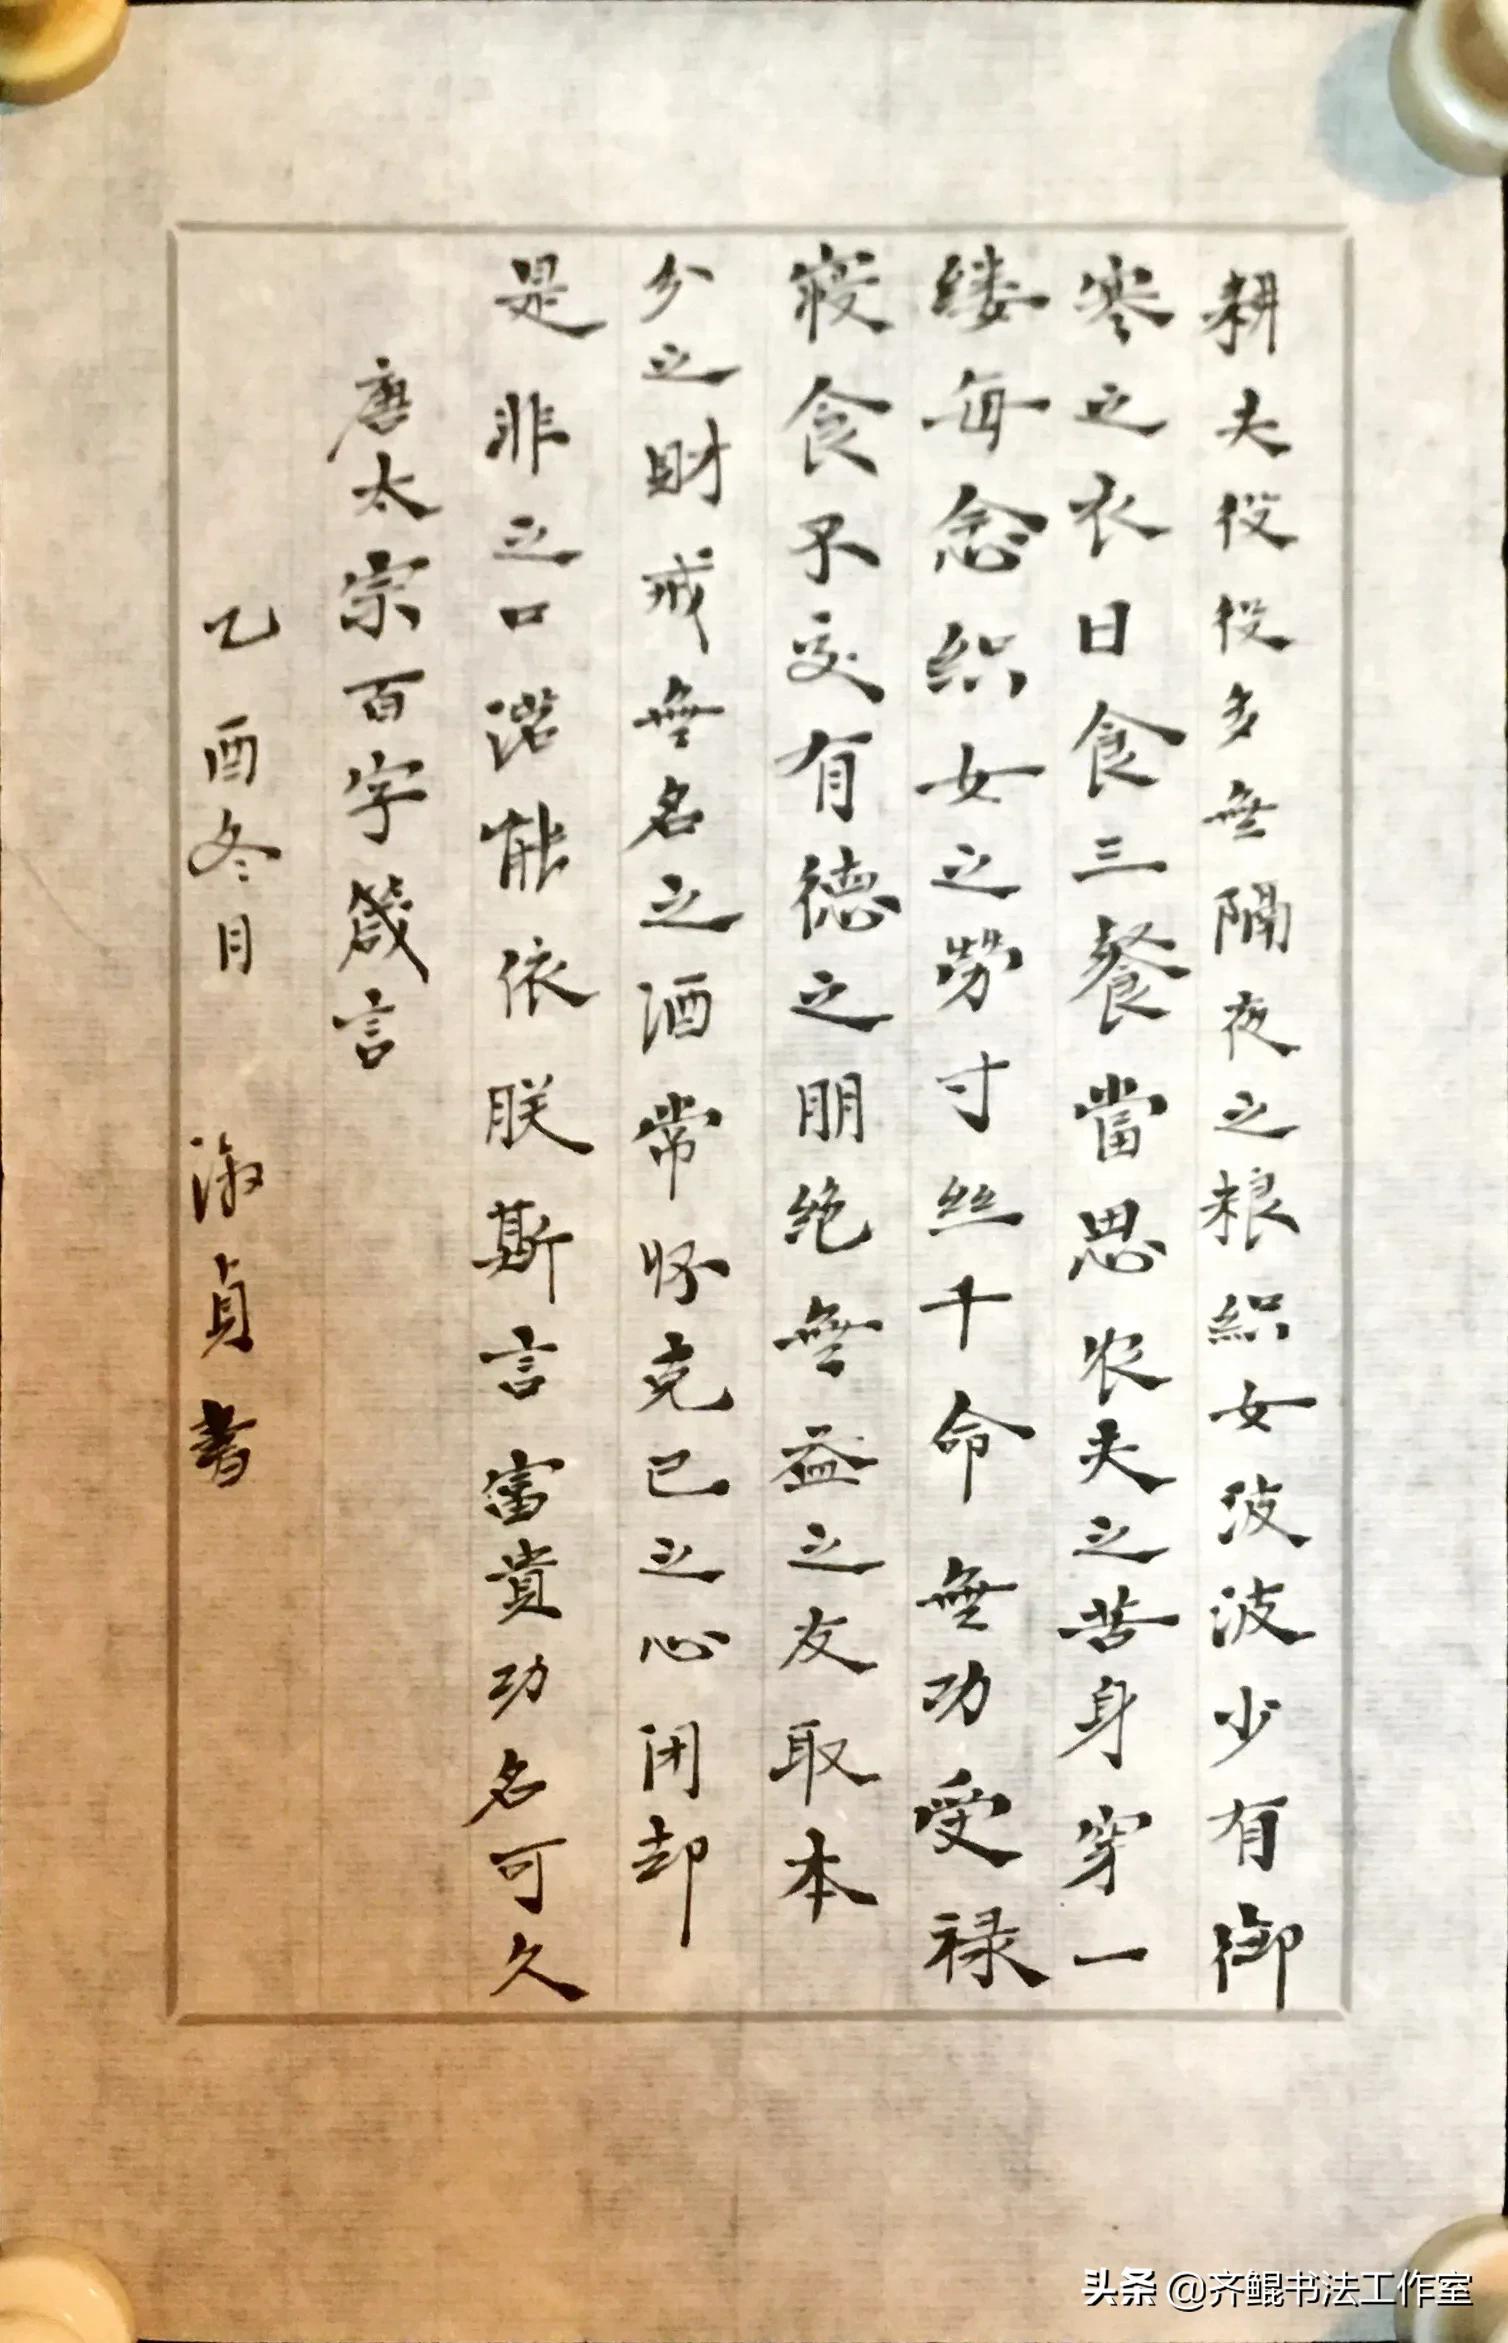 耕夫役役多無隔夜之粮織女波波少有御
寒之衣日食三餐當思农夫之苦身穿一
缕每念织女之勞寸丝千命無功受禄
寝食不交有德之朋绝無益之友取本
分之財戒無名之酒常怀克己之心闭却
是非之口若能依朕斯言富貴功名可久
唐太宗百字箴言
乙酉冬月 淑貞書
头条 @齐鲲书法工作室